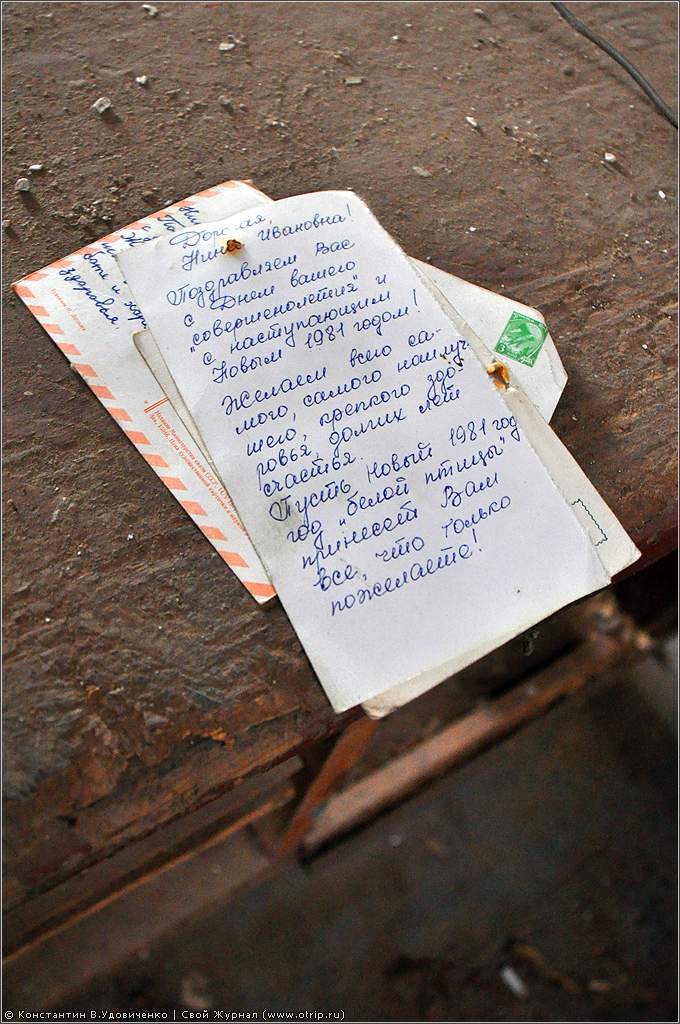 Дорогая,
Нина Ивановна!
Поздравляем Вас
с "Днем вашего
"совершенолетия" и
с наступающим
Новым 1981 годом!
Желаем всего са-
мого, самого наилуч-
шего, крепкого здо-
ровья, долгих лет
счастья.
Пусть Новый 1981 год
год "белой птицы"
принесет Вам
все, что только
пожелаете!
здоровья.
© Константин В.Удовиченко | Свой Журнал (www.otrip.ru)